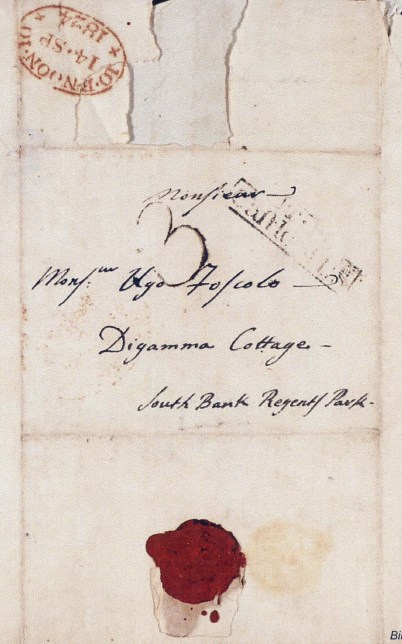 10·F·NOON·10
14·SP
1824
Monsieur
3
Mons.ieur Ugo Foscolo
Digamma Cottage
South Bank Regents Park
Bi